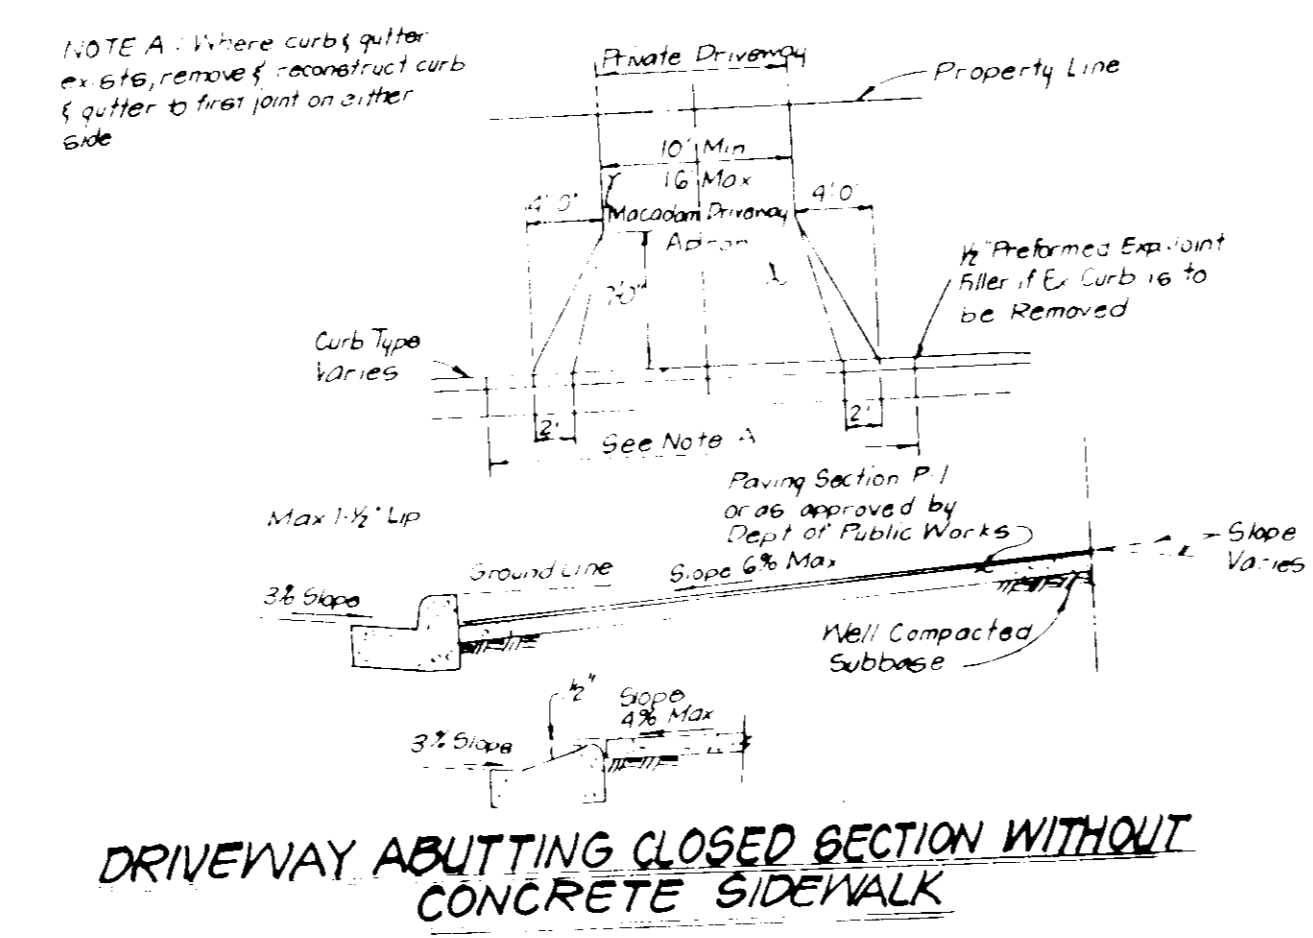 NOTE A : Where curb & gutter
exists, remove & reconstruct curb
& gutter to first joint on either
side
Private Driveway
Property Line
10' Min
16' Max
4'-0"
4'-0"
Macadam Driveway
Apron
1/2" Preformed Exp. Joint
Filler if Ex Curb is to
be Removed
Curb Type
Varies
2'
2'
See Note A
Paving Section P-1
or as approved by
Dept of Public Works
Max 1-1/2" Lip
Slope
Varies
Ground Line
Slope 6% Max
3% Slope
Well Compacted
Subbase
1/2"
Slope
4% Max
3% Slope
DRIVEWAY ABUTTING CLOSED SECTION WITHOUT
CONCRETE SIDEWALK